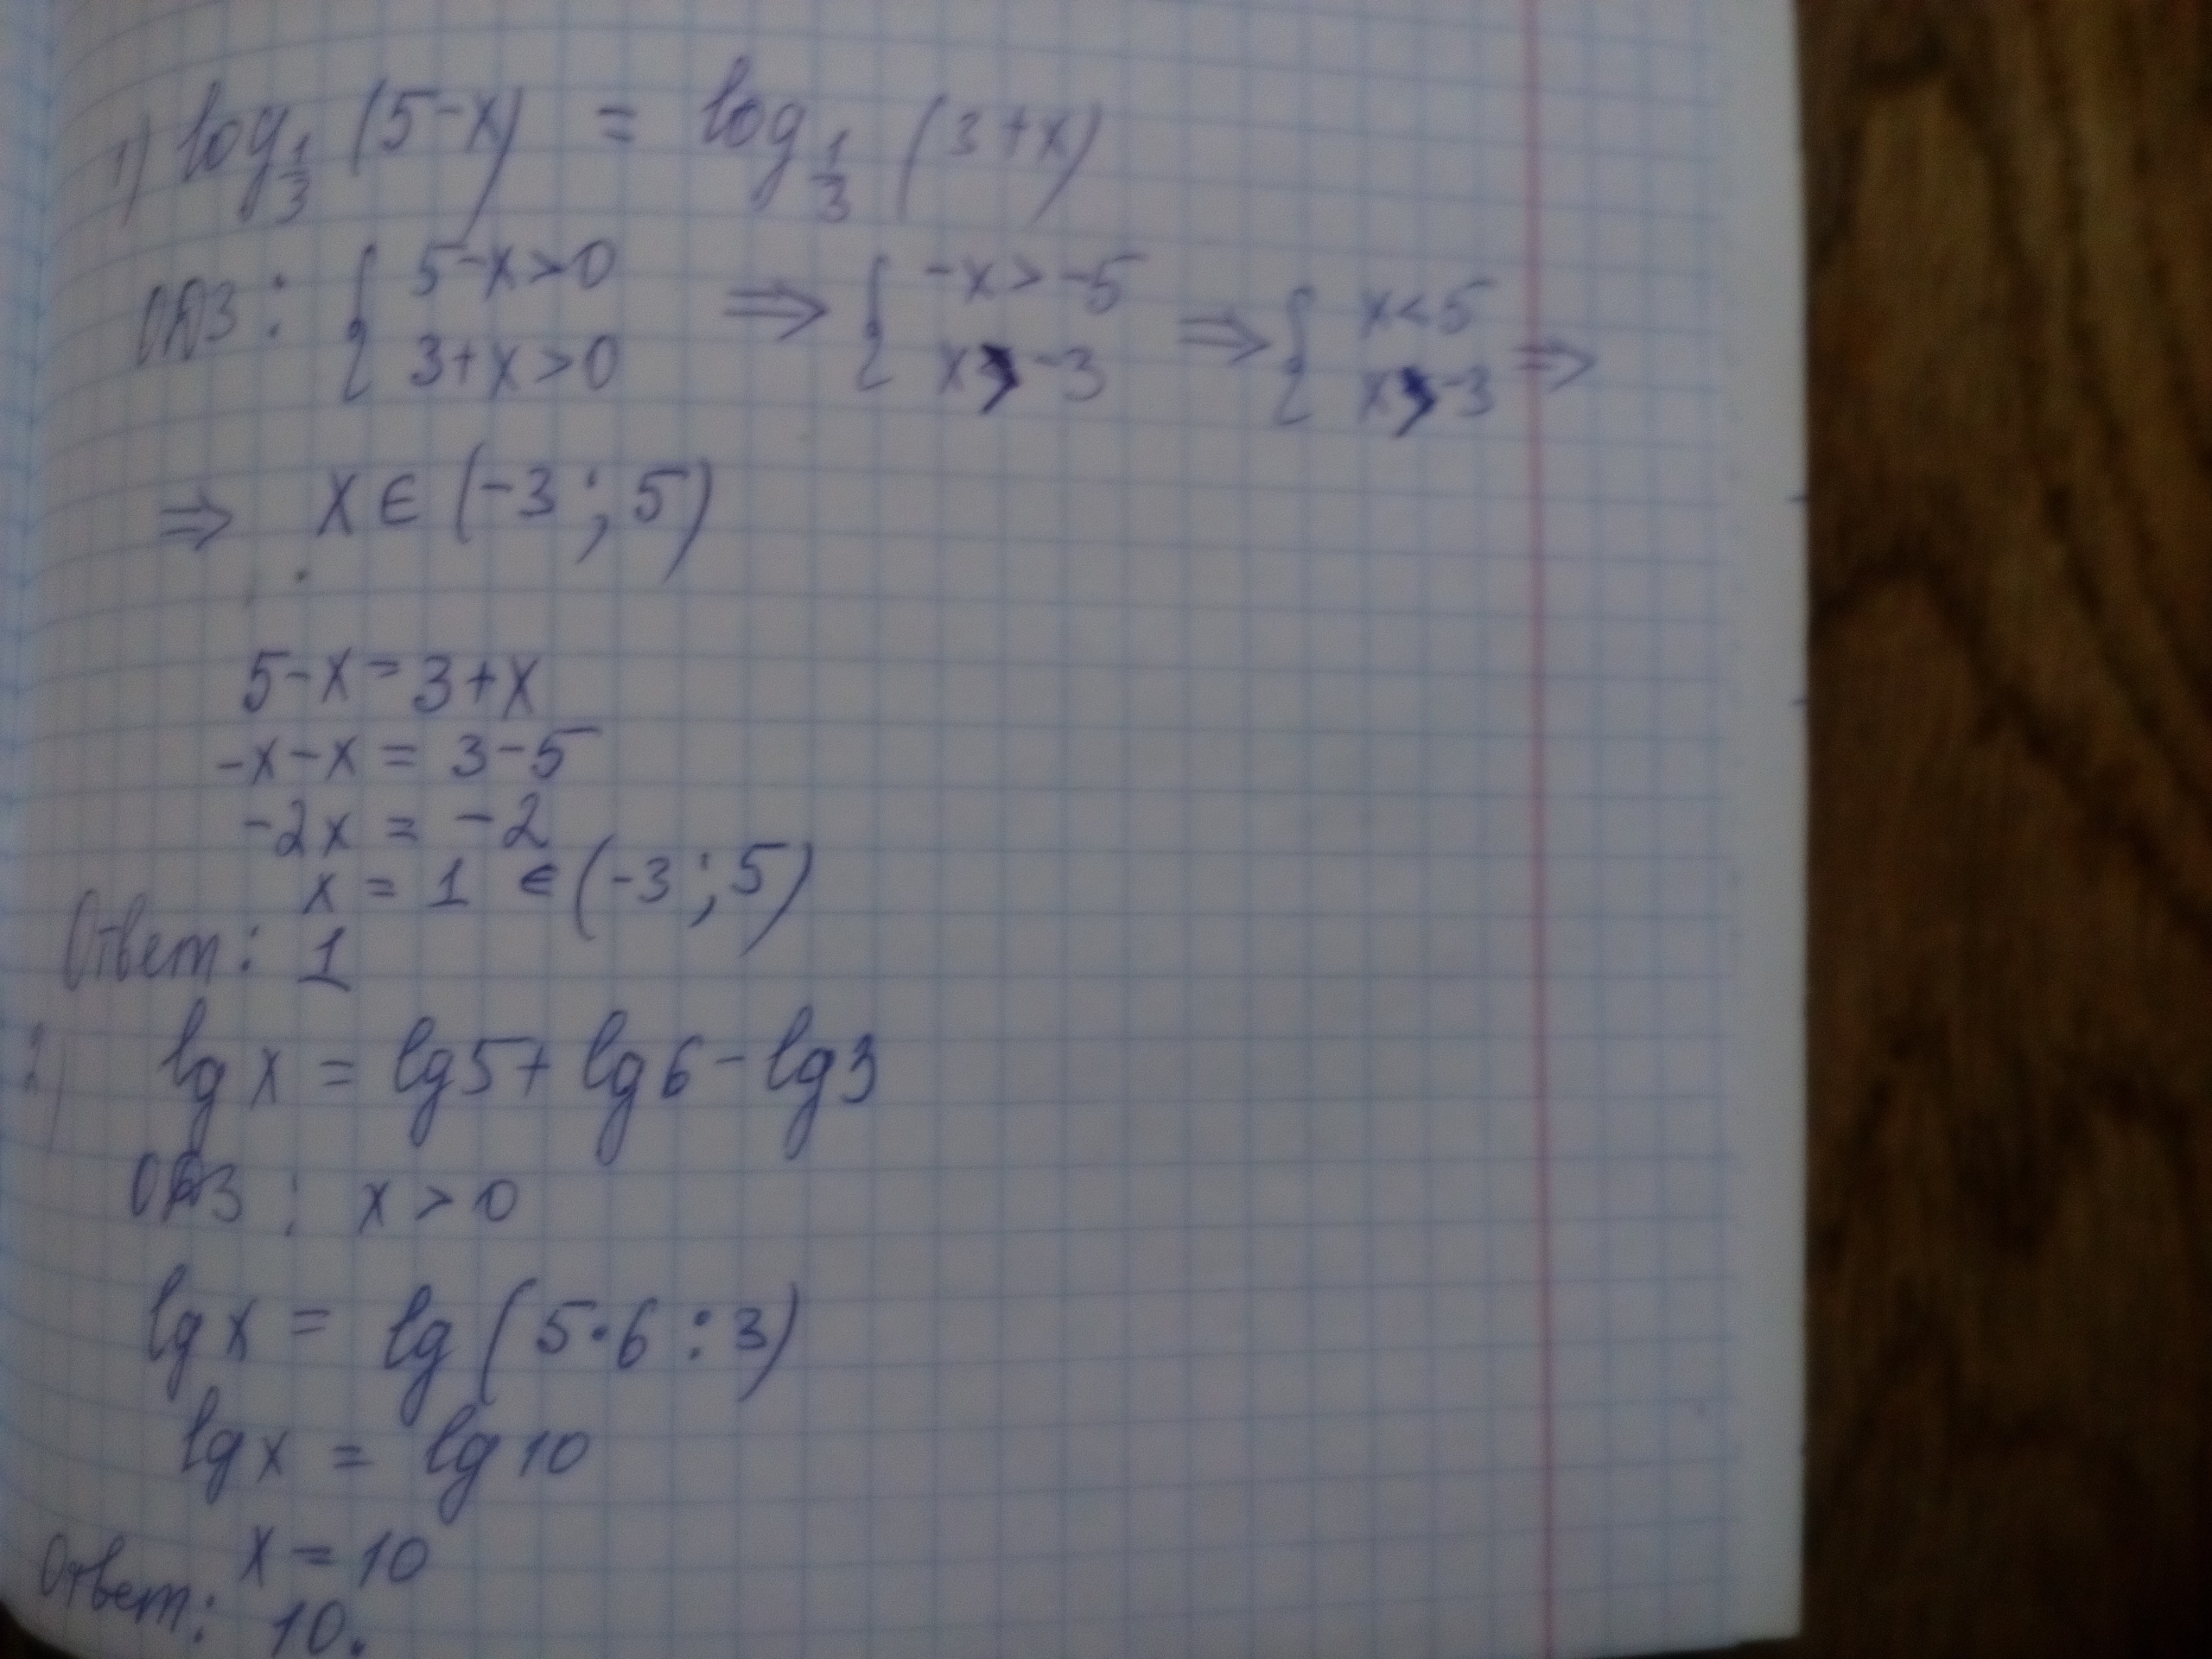 1) log 1/3 (5-x) = log 1/3 (3+x)
ОДЗ: { 5-x>0 3+x>0 ⇒ { -x>-5 x>-3 ⇒ { x<5 x>-3 ⇒
⇒ x∈(-3;5)
5-x=3+x
-x-x=3-5
-2x=-2
x=1 ∈(-3;5)
Ответ: 1
2) lg x = lg5+ lg6-lg3
ОДЗ: x>0
lg x = lg(5·6:3)
lg x = lg 10
x=10
Ответ: 10.